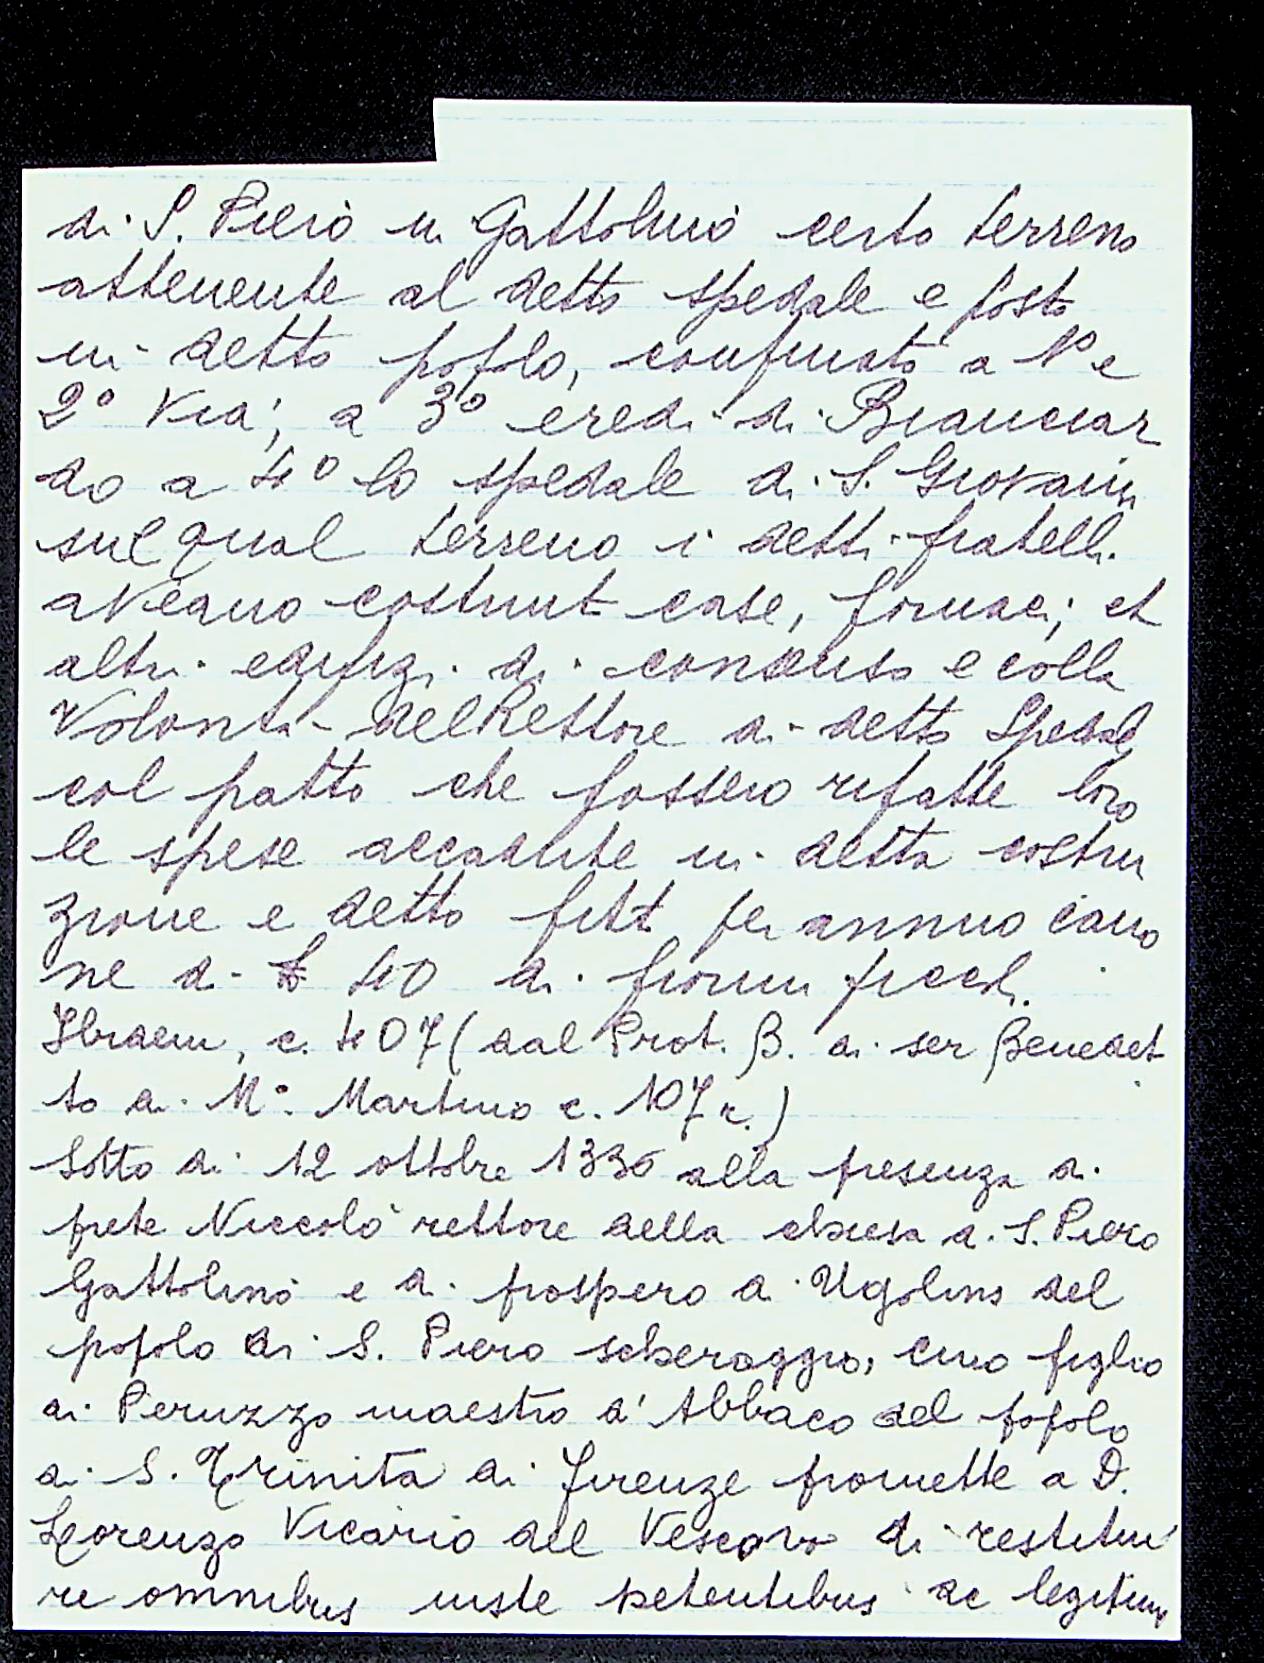 di S. Piero in Gattolino certo terreno
attenente al detto spedale e posto
in detto popolo, confinato a 1° e
2° via; a 3° eredi di Branciar
do a 4° lo spedale di S. Giovanni
sul qual terreno i detti fratelli
aveano costruit case, fornaci, et
altri edifizi di consenso e colla
volontà del Rettore di detto Spedal
col patto che fossero rifatte loro
le spese accadute in detta costru
zione e detto fitt per annuo cano
ne di £ 40 di fiorini piccoli.
Ibraem, c. 407 (dal Prot. B. di ser Benedet
to di M° Martino c. 107 r.)
Sotto di 12 ottobre 1336 alla presenza di
prete Niccolò rettore della chiesa di S. Piero
Gattolino e di prospero di Ugolino del
popolo di S. Piero scheraggio, Cino figlio
di Peruzzo maestro d'Abbaco del popolo
di S. Trinita di Firenze promette a D.
Lorenzo Vicario del Vescovo di restitui
re omnibus iuste petentibus ac legitime